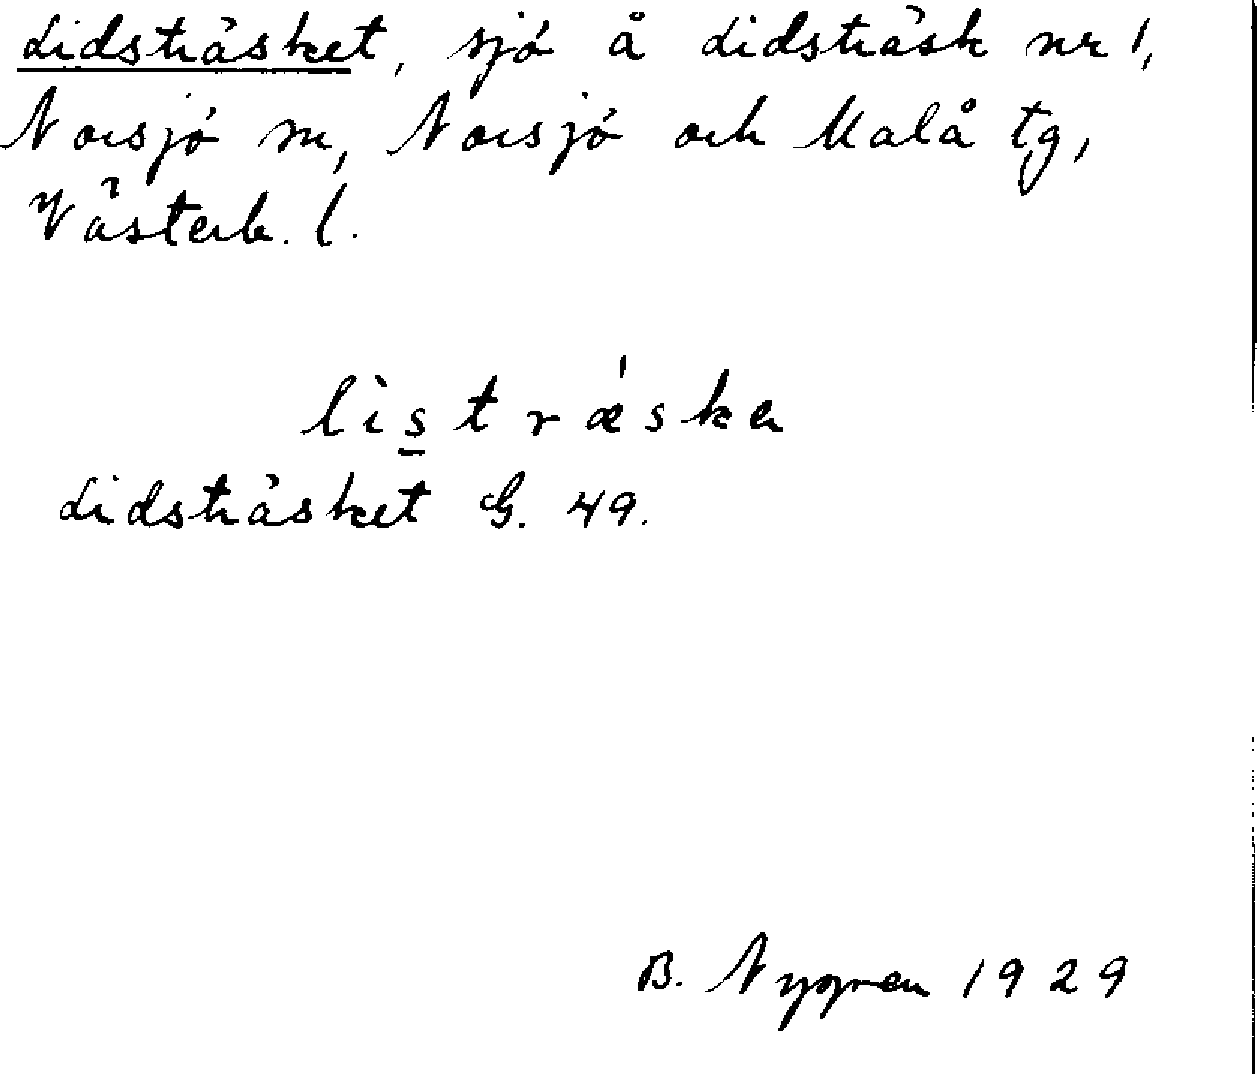 Lidsträsket, sjö å Lidsträsk nr 1,
Norsjö sn, Norsjö och Malå tg,
Västerb. l.
lìstrǽska
Lidsträsket G. 49.
B. Nygren 1929